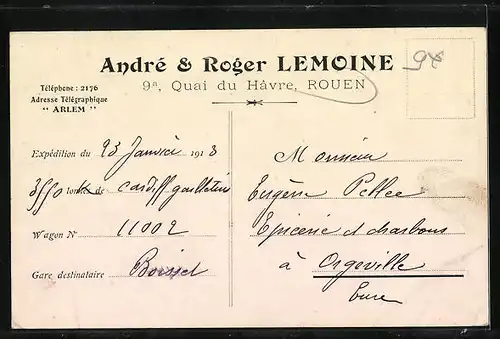 94
André & Roger LEMOINE
9ᴬ, Quai du Hâvre, ROUEN
Téléphone : 2176
Adresse Télégraphique
" ARLEM "
Expédition du 23 Janvier 1913
tonnes de Cardiff
Wagon N° 11002
Gare destinataire Boisset
Monsieur
Eugène Pellee
Epicerie et charbons
à Orgeville
Eure